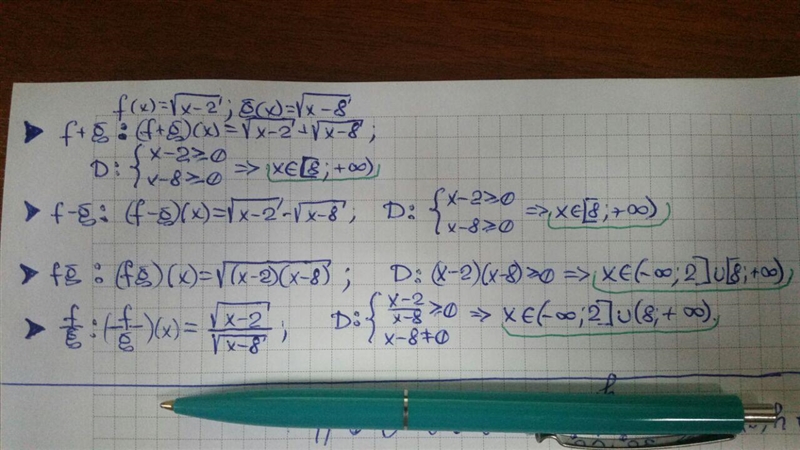 f(x)=√(x-2); g(x)=√(x-8)
➤ f+g: (f+g)(x)=√(x-2)+√(x-8);
D: {x-2≥0
x-8≥0 => x∈[8;+∞)
➤ f-g: (f-g)(x)=√(x-2)-√(x-8); D: {x-2≥0
x-8≥0 => x∈[8;+∞)
➤ fg: (fg)(x)=√((x-2)(x-8)); D: (x-2)(x-8)≥0 => x∈(-∞;2]∪[8;+∞)
➤ f/g: (f/g)(x)=√(x-2)/√(x-8); D: {(x-2)/(x-8)≥0
x-8≠0 => x∈(-∞;2]∪(8;+∞).